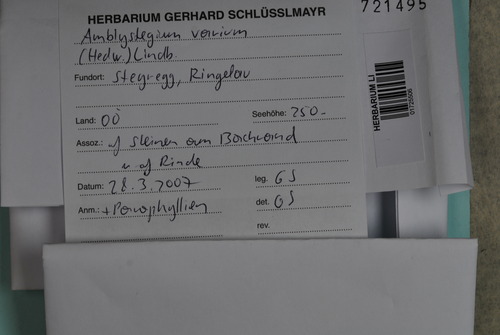 721495
HERBARIUM GERHARD SCHLÜSSLMAYR
Amblystegium varium
(Hedw.) Lindb.
Fundort: Steyregg, Ringelau
Land: OÖ Seehöhe: 250.-
Assoz.: auf Steinen am Bachrand
u. auf Rinde
Datum: 28.3.2007 leg. GS
Anm.: + Paraphyllien det. GS
rev.
HERBARIUM LI